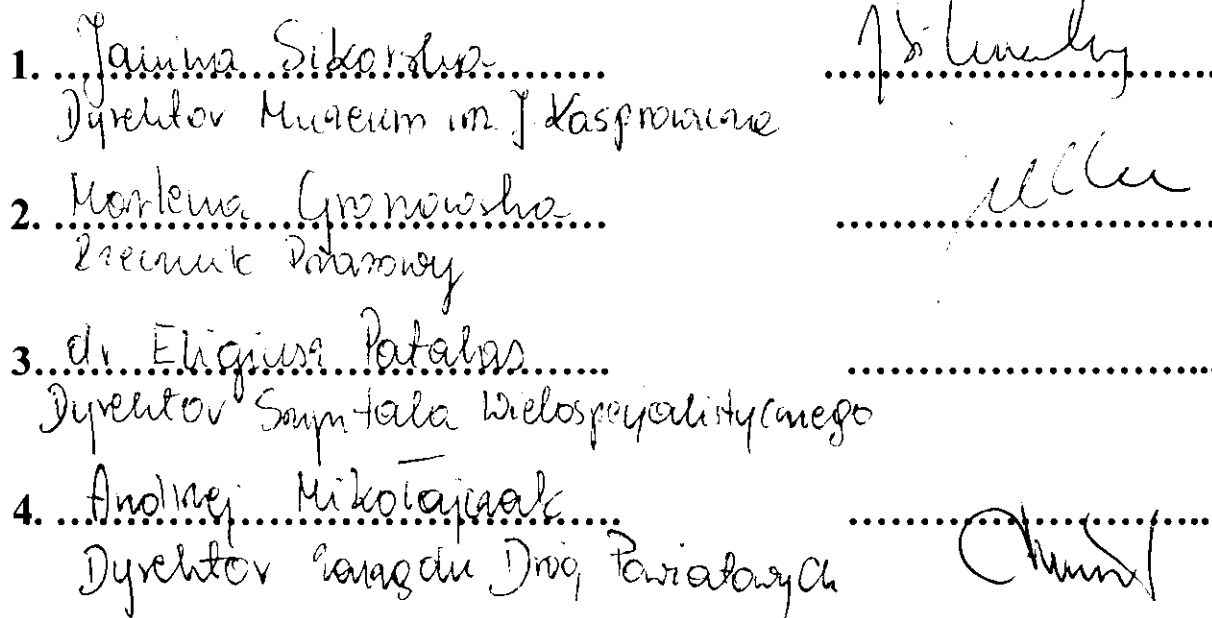 1. Janina Sikorska
Dyrektor Muzeum im. J Kasprowicza
2. Marlena Gronowska
Rzecznik Prasowy
3. dr Eligiusz Patalas
Dyrektor Szpitala Wielospecjalistycznego
4. Andrzej Mikołajczak
Dyrektor Zarządu Dróg Powiatowych